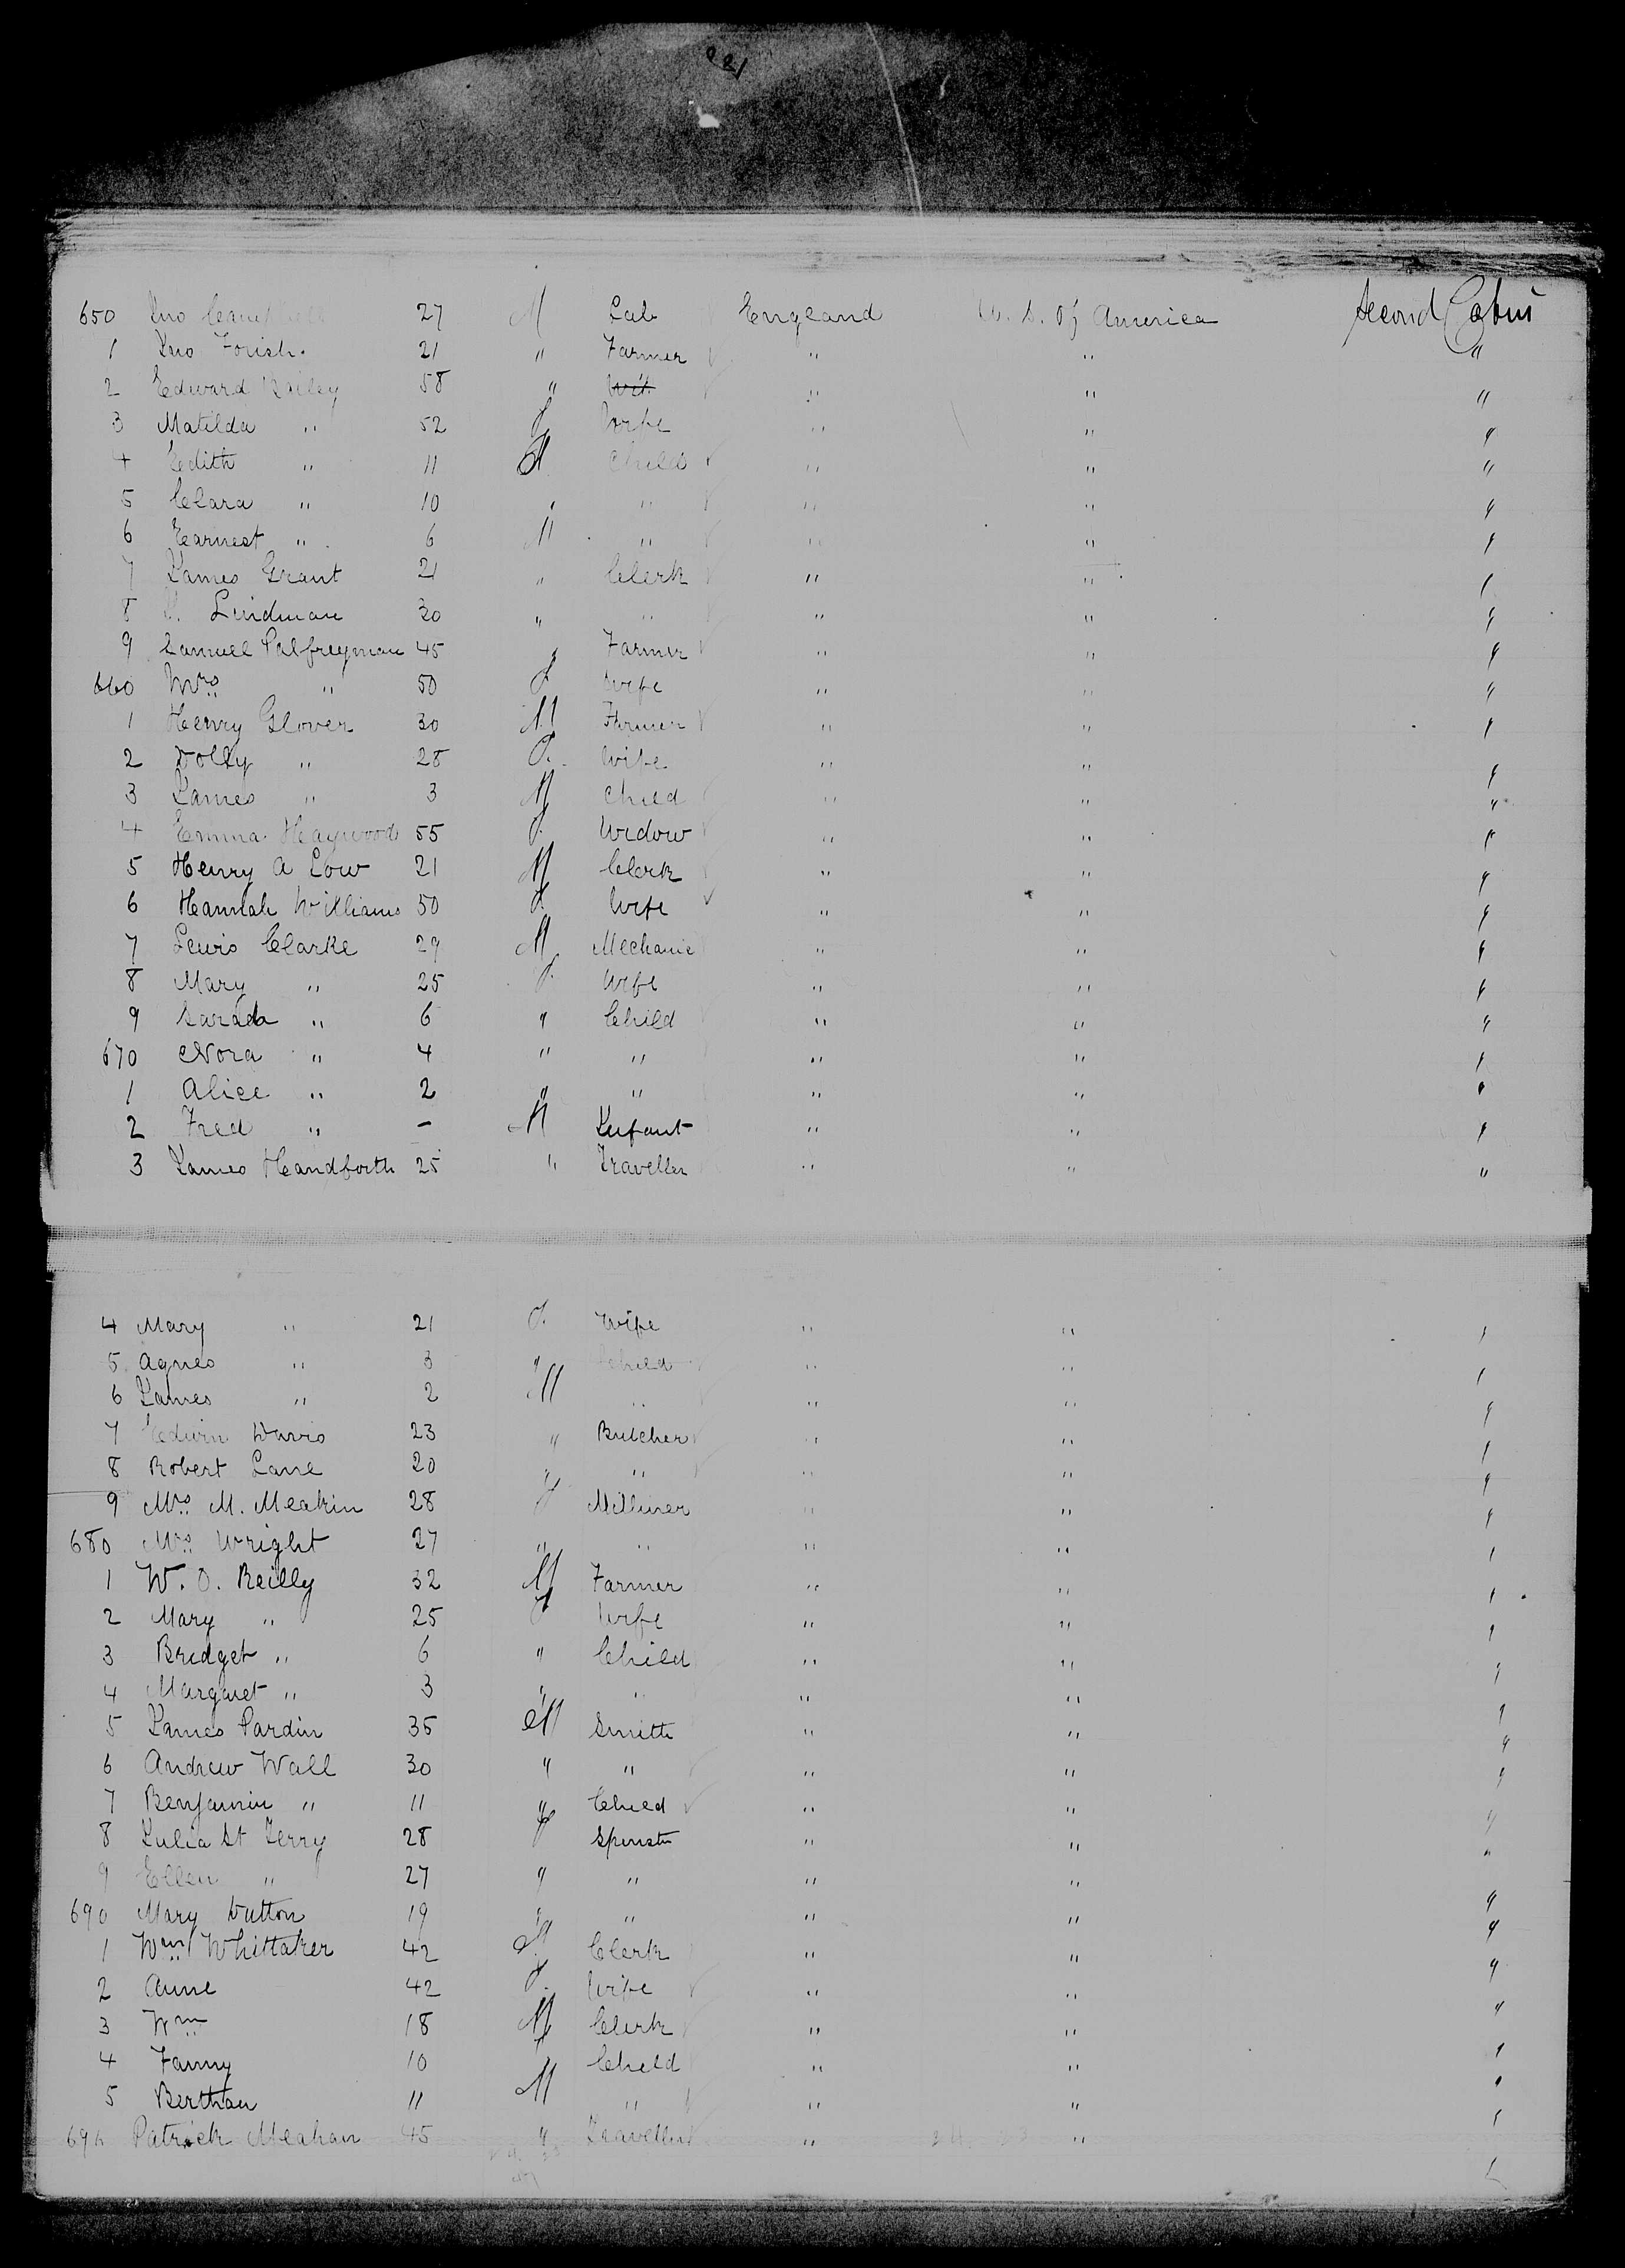 221
650 Jno Campbell 27 M Lab England U. S. Of America Second Cabin
1 Jno Forish. 21 " Farmer " " "
2 Edward Bailey 58 " " " "
3 Matilda " 52 f Wife " " "
4 Edith " 11 Child " " "
5 Clara " 10 " " " " "
6 Earnest " 6 M " " " "
7 James Grant 21 " Clerk " " "
8 Lindman 30 " " " " "
9 Samuel Palfreyman 45 " Farmer " " "
660 Mrs " 50 f Wife " " "
1 Henry Glover 30 M Farmer " " "
2 Dolly " 28 f. Wife " " "
3 James " 3 M Child " " "
4 Emma Haywood 55 f. Widow " " "
5 Henry A Low 21 M Clerk " " "
6 Hannah Williams 50 f. Wife " " "
7 Lewis Clarke 29 M Mechanic " " "
8 Mary " 25 f. Wife " " "
9 Sarah " 6 " Child " " "
670 Nora " 4 " " " " "
1 Alice " 2 " " " " "
2 Fred " - M Infant " " "
3 James Handforth 25 " Traveller " " "
4 Mary " 21 f. Wife " " "
5 Agnes " 3 " Child " " "
6 James " 2 M " " " "
7 Edwin Davis 23 " Butcher " " "
8 Robert Lane 20 " " " " "
9 Mrs M. Meakin 28 f Milliner " " "
680 Mrs Wright 27 " " " " "
1 W. O. Reilly 32 M Farmer " " "
2 Mary " 25 f Wife " " "
3 Bridget " 6 " Child " " "
4 Margaret " 3 " " " " "
5 James Pardin 35 M Smith " " "
6 Andrew Wall 30 " " " " "
7 Benjamin " 11 " Child " " "
8 Julia St Terry 28 f Spinster " " "
9 Ellen " 27 " " " " "
690 Mary Dutton 19 " " " " "
1 Wm Whittaker 42 M Clerk " " "
2 Anne 42 f. Wife " " "
3 Wm 18 M Clerk " " "
4 Fanny 10 f Child " " "
5 Berthan 11 M " " " "
696 Patrick Meahan 45 " Traveller " " "